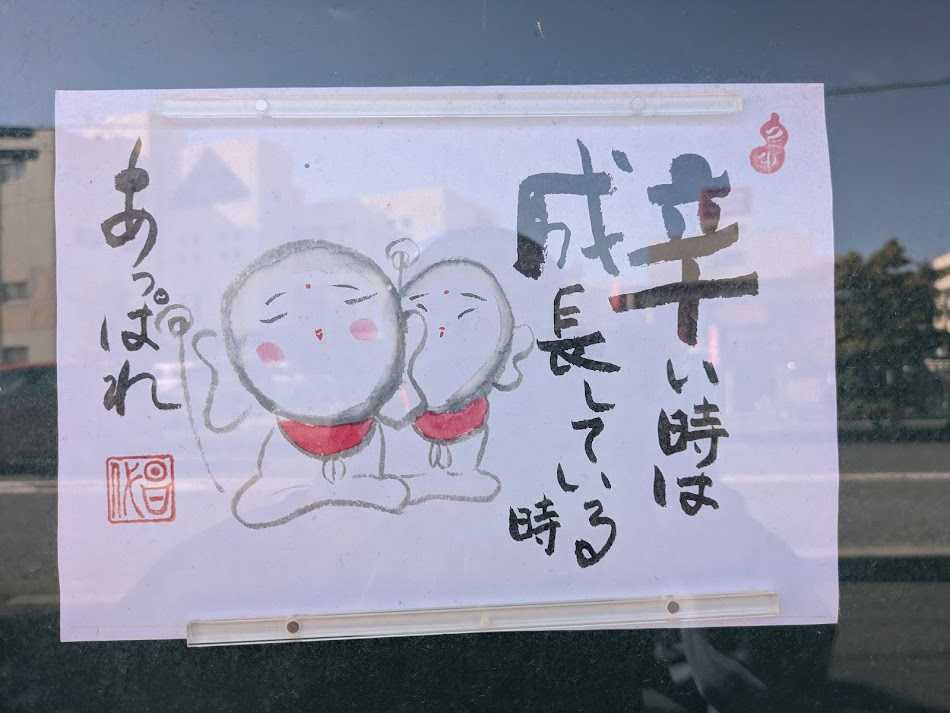 辛い時は
成長している
時
あっぱれ